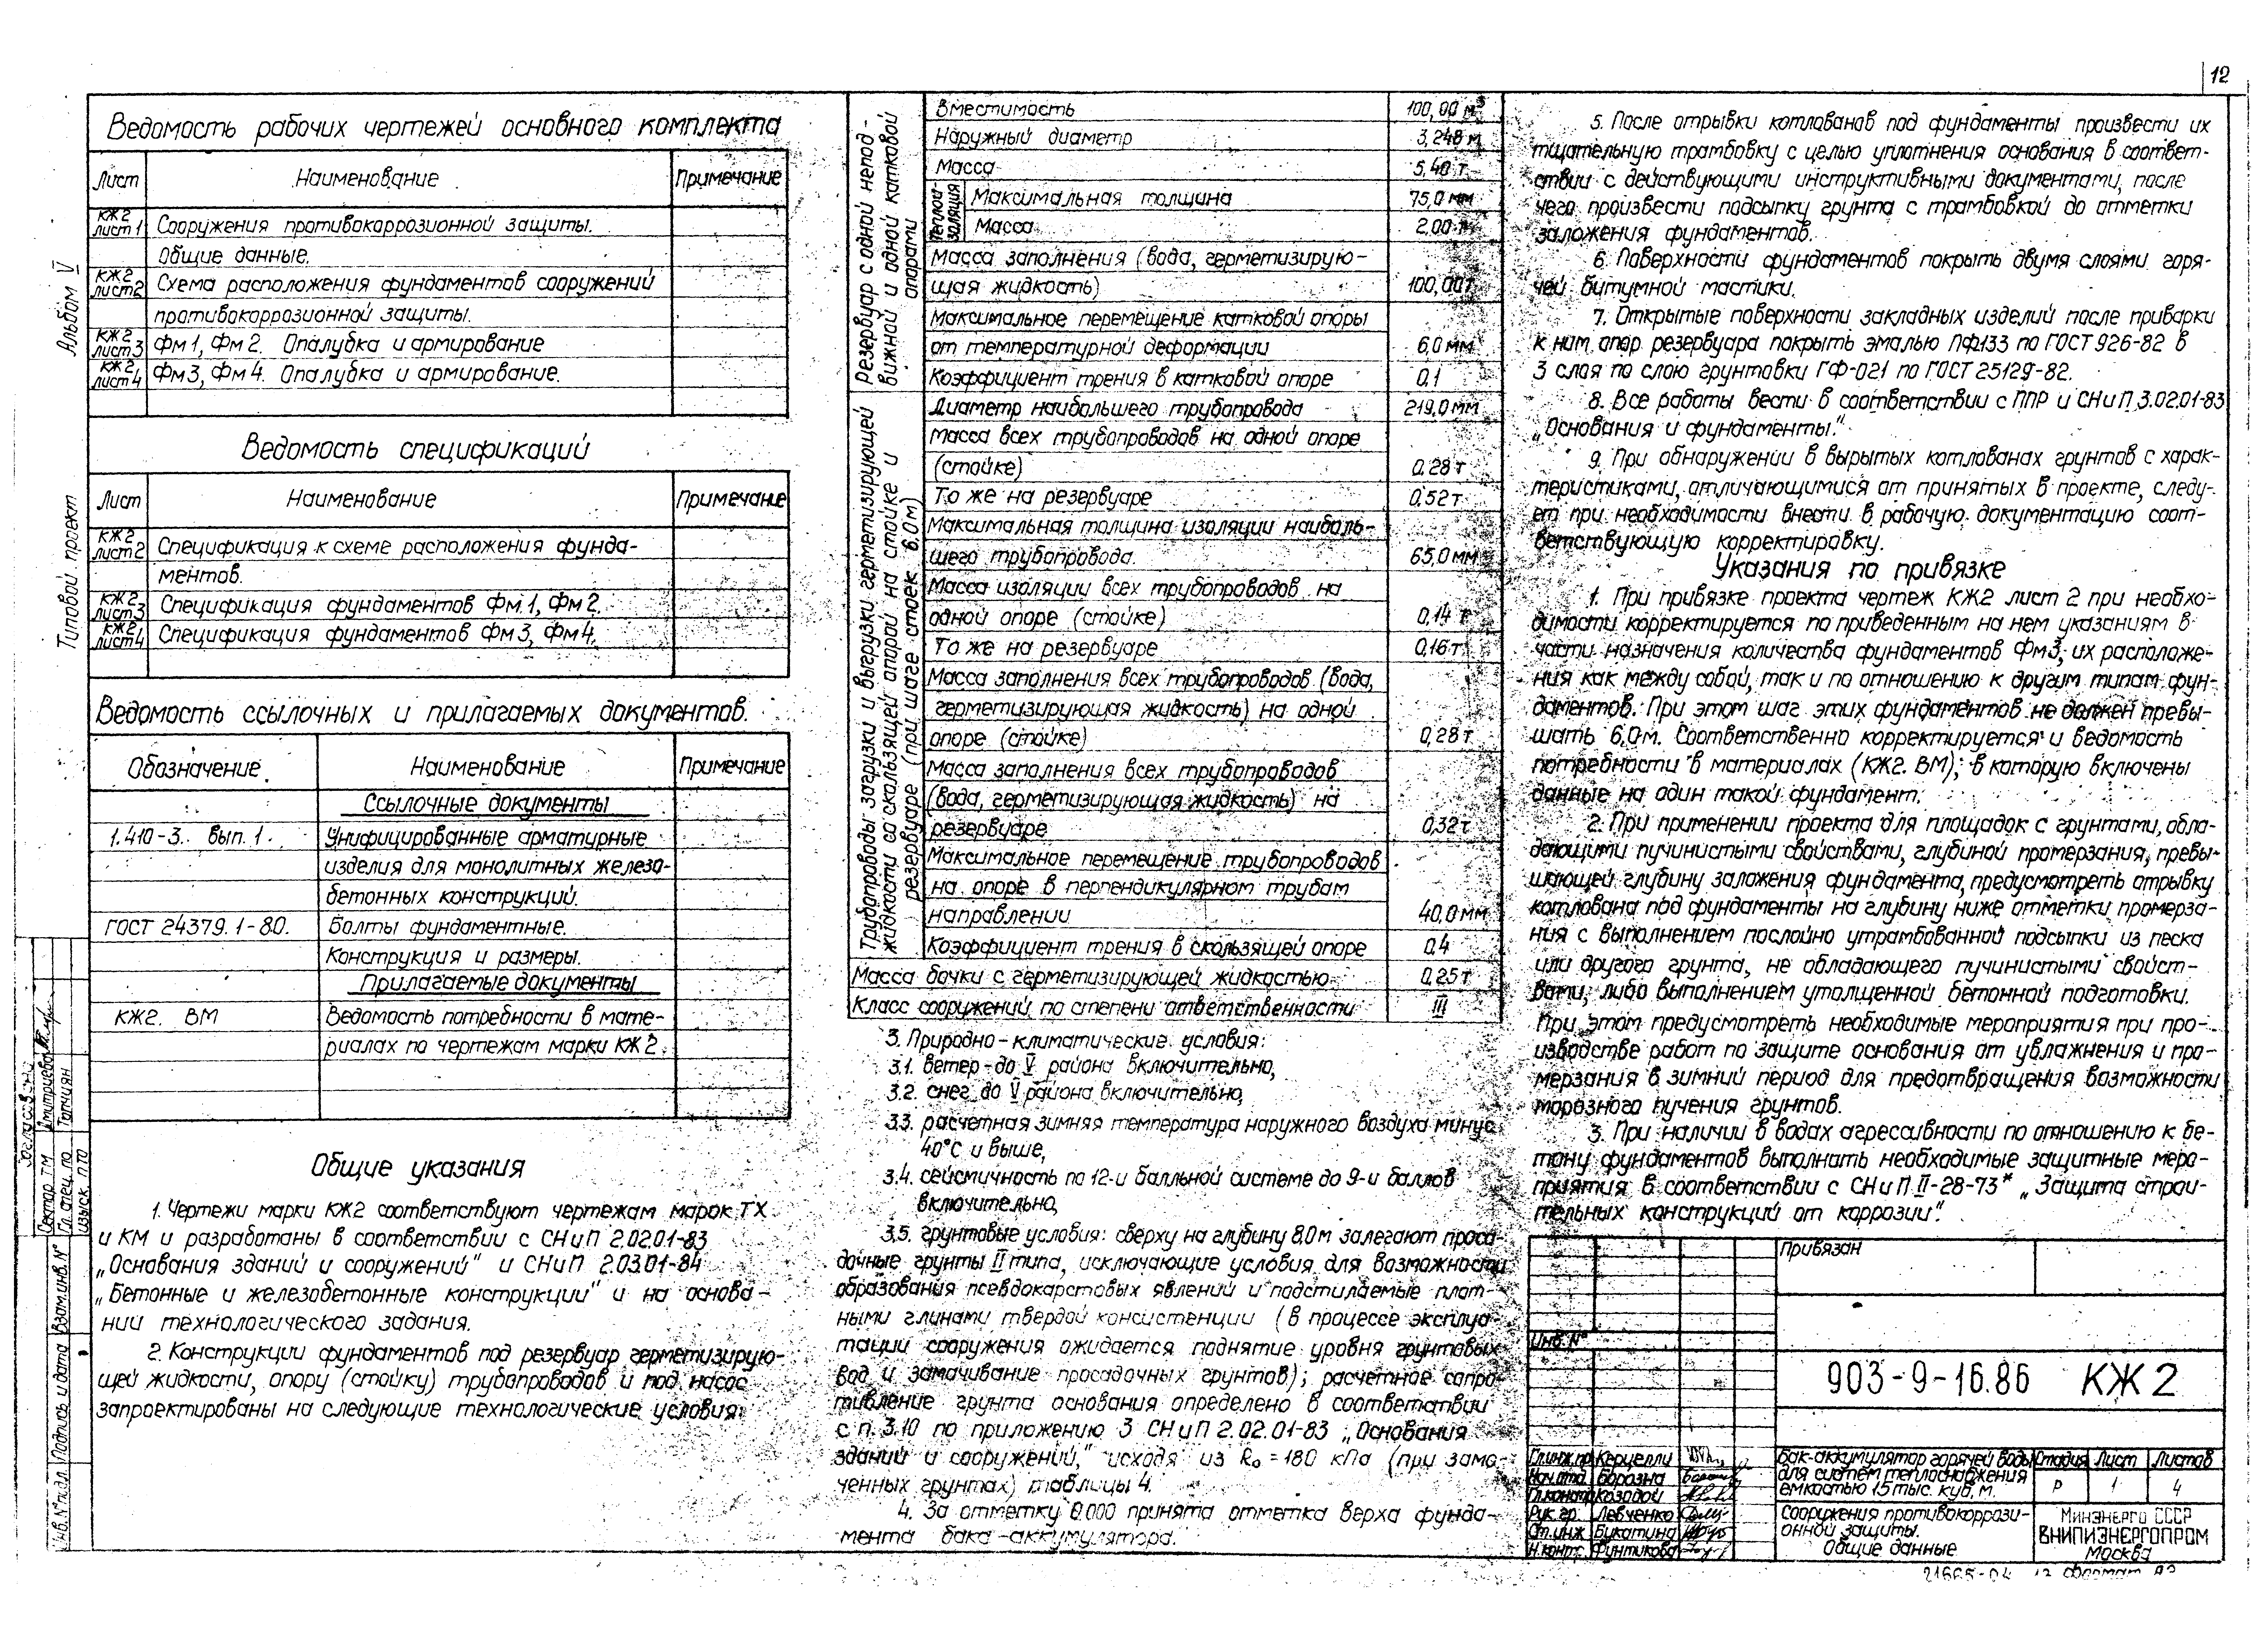 12
Альбом V
Типовой проект
Ведомость рабочих чертежей основного комплекта
Лист Наименование Примечание
КЖ2 лист 1 Сооружения противокоррозионной защиты.
Общие данные.
КЖ2 лист 2 Схема расположения фундаментов сооружений
противокоррозионной защиты.
КЖ2 лист 3 Фм 1, Фм 2. Опалубка и армирование
КЖ2 лист 4 Фм 3, Фм 4. Опалубка и армирование.
Ведомость спецификаций
Лист Наименование Примечание
КЖ2 лист 2 Спецификация к схеме расположения фунда-
ментов.
КЖ2 лист 3 Спецификация фундаментов Фм 1, Фм 2.
КЖ2 лист 4 Спецификация фундаментов Фм 3, Фм 4.
Ведомость ссылочных и прилагаемых документов.
Обозначение Наименование Примечание
Ссылочные документы
1.410-3. вып. 1. Унифицированные арматурные
изделия для монолитных железо-
бетонных конструкций.
ГОСТ 24379.1-80. Болты фундаментные.
Конструкция и размеры.
Прилагаемые документы
КЖ2. ВМ Ведомость потребности в мате-
риалах по чертежам марки КЖ2.
Общие указания
1. Чертежи марки КЖ2 соответствуют чертежам марок ТХ
и КМ и разработаны в соответствии с СНиП 2.02.01-83
„Основания зданий и сооружений" и СНиП 2.03.01-84
„Бетонные и железобетонные конструкции" и на основа-
нии технологического задания.
2. Конструкции фундаментов под резервуар герметизирую-
щей жидкости, опору (стойку) трубопроводов и под насос
запроектированы на следующие технологические условия:
Согласовано
Сектор ТМ Дмитриева
Гл. спец. по Топчиян
Взам.инв.№
Подпись и дата
Инв.№ подл.
Резервуар с одной непод-
вижной и одной катковой
опорами
Вместимость 100,00 м³
Наружный диаметр 3,248 м
Масса 5,40 т
Теплоизоляция
Максимальная толщина 75,0 мм
Масса 2,00 т
Масса заполнения (вода, герметизирую-
щая жидкость) 100,00т
Максимальное перемещение катковой опоры
от температурной деформации 6,0 мм
Коэффициент трения в катковой опоре 0,1
Трубопроводы загрузки и выгрузки герметизирующей
жидкости со скользящей опорой на стойке и
резервуаре (при шаге стоек 6.0 м)
Диаметр наибольшего трубопровода 219,0 мм
Масса всех трубопроводов на одной опоре
(стойке) 0,28 т
То же на резервуаре 0,52 т
Максимальная толщина изоляции наиболь-
шего трубопровода. 65,0 мм
Масса изоляции всех трубопроводов на
одной опоре (стойке) 0,14 т
То же на резервуаре 0,16 т
Масса заполнения всех трубопроводов (вода,
герметизирующая жидкость) на одной
опоре (стойке) 0,28 т
Масса заполнения всех трубопроводов
(вода, герметизирующая жидкость) на
резервуаре 0,32 т
Максимальное перемещение трубопроводов
на опоре в перпендикулярном трубам
направлении 40,0 мм
Коэффициент трения в скользящей опоре 0,4
Масса бочки с герметизирующей жидкостью 0,25 т
Класс сооружений по степени ответственности III
3. Природно-климатические условия:
3.1. ветер-до V района включительно,
3.2. снег до V района включительно,
3.3. расчетная зимняя температура наружного воздуха минус
40°С и выше,
3.4. сейсмичность по 12-и балльной системе до 9-и баллов
включительно,
3.5. грунтовые условия: сверху на глубину 8,0 м залегают проса-
дочные грунты II типа, исключающие условия для возможности
образования псевдокарстовых явлений и подстилаемые плот-
ными глинами твердой консистенции (в процессе эксплуа-
тации сооружения ожидается поднятие уровня грунтовых
вод и замачивание просадочных грунтов); расчетное сопро-
тивление грунта основания определено в соответствии
с п. 3.10 по приложению 3 СНиП 2.02.01-83 „Основания
зданий и сооружений," исходя из Rо = 180 кПа (при замо-
ченных грунтах) таблицы 4.
4. За отметку 0.000 принята отметка верха фунда-
мента бака-аккумулятора.
5. После отрывки котлованов под фундаменты произвести их
тщательную трамбовку с целью уплотнения основания в соответ-
ствии с действующими инструктивными документами, после
чего произвести подсыпку грунта с трамбовкой до отметки
заложения фундаментов.
6. Поверхности фундаментов покрыть двумя слоями горя-
чей битумной мастики.
7. Открытые поверхности закладных изделий после приварки
к ним опор резервуара покрыть эмалью ПФ133 по ГОСТ 926-82 в
3 слоя по слою грунтовки ГФ-021 по ГОСТ 25129-82.
8. Все работы вести в соответствии с ППР и СНиП 3.02.01-83
„Основания и фундаменты."
9. При обнаружении в вырытых котлованах грунтов с харак-
теристиками, отличающимися от принятых в проекте, следу-
ет при необходимости внести в рабочую документацию соот-
ветствующую корректировку.
Указания по привязке
1. При привязке проекта чертеж КЖ2 лист 2 при необхо-
димости корректируется по приведенным на нем указаниям в
части назначения количества фундаментов Фм3, их расположе-
ния как между собой, так и по отношению к другим типам фун-
даментов. При этом шаг этих фундаментов не должен превы-
шать 6,0м. Соответственно корректируется и ведомость
потребности в материалах (КЖ2. ВМ), в которую включены
данные на один такой фундамент.
2. При применении проекта для площадок с грунтами, обла-
дающими пучинистыми свойствами, глубиной промерзания, превы-
шающей глубину заложения фундамента, предусмотреть отрывку
котлована под фундаменты на глубину ниже отметки промерза-
ния с выполнением послойно утрамбованной подсыпки из песка
или другого грунта, не обладающего пучинистыми свойст-
вами, либо выполнением утолщенной бетонной подготовки.
При этом предусмотреть необходимые мероприятия при про-
изводстве работ по защите основания от увлажнения и про-
мерзания в зимний период для предотвращения возможности
морозного пучения грунтов.
3. При наличии в водах агрессивности по отношению к бе-
тону фундаментов выполнать необходимые защитные меро-
приятия в соответствии с СНиП II-28-73* „Защита строи-
тельных конструкций от коррозии".
Привязан
Инв. №
903-9-16.86 КЖ 2
Гл.инж.пр Керцелли
Нач.отд. Борозна
Гл.констр Козодой
Рук. гр. Левченко
Ст.инж. Букатина
Н.контр. Фунтикова
Бак-аккумулятор горячей воды
для систем теплоснабжения
емкостью 15 тыс. куб. м.
Стадия Лист Листов
Р 1 4
Сооружения противокоррози-
онной защиты.
Общие данные
Минэнерго СССР
ВНИПИЭНЕРГОПРОМ
Москва
21665-04 Формат